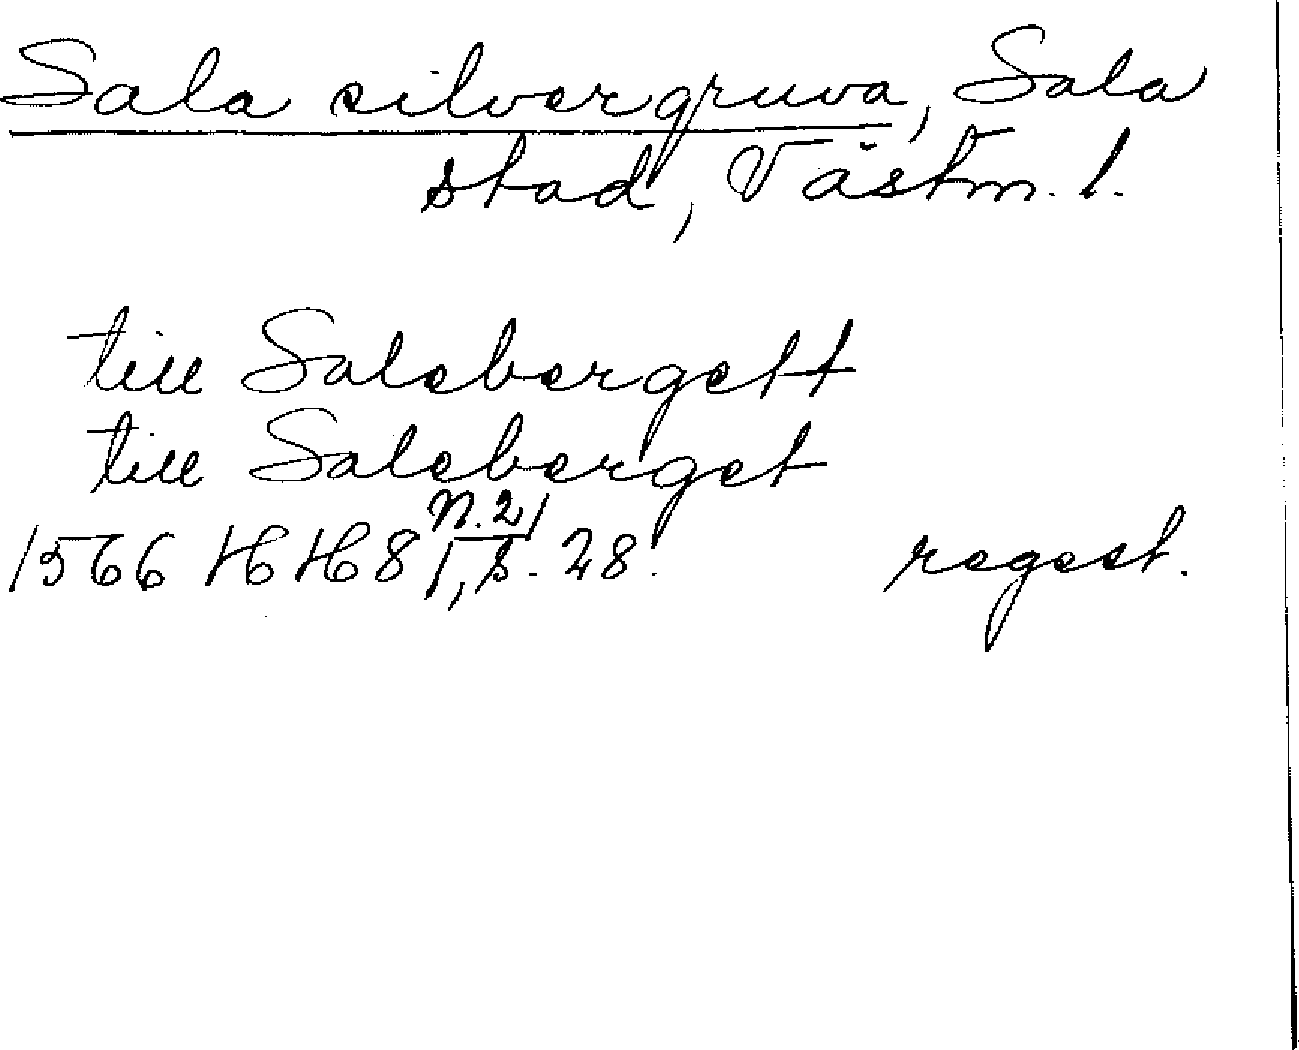 Sala silvergruva, Sala
stad, Västm. l.
till Salebergett
till Saleberget
N. 21
1566 HH 8 1, s. 28. regest.